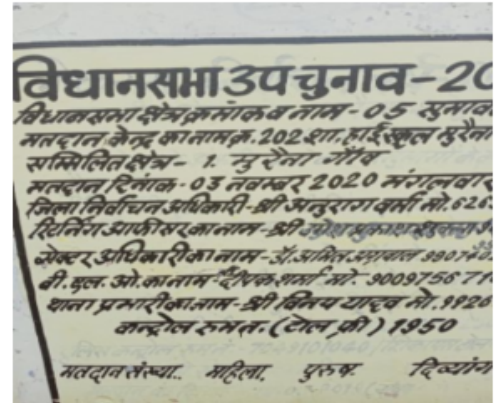 विधानसभा उप चुनाव-20
विधानसभा क्षेत्र क्रमांक व नाम - 05 सुमाव
मतदान केन्द्र का नाम क्र. 202 शा. हाईस्कूल मुरैना
सम्मिलित क्षेत्र - 1. मुरैना गाँव
मतदान दिनांक - 03 नवम्बर 2020 मंगलवार
जिला निर्वाचन अधिकारी - श्री अनुराग वर्मा मो. 626
रिटर्निंग आफीसर का नाम - श्री
सेक्टर अधिकारी का नाम - डॉ. अमित अग्रवाल 990740
बी. एल. ओ. का नाम - दीपक शर्मा मो. 90097567
थाना प्रभारी का नाम - श्री विनय यादव मो. 9926
कन्ट्रोल रूम न. (टोल फ्री) 1950
मतदान संख्या.. महिला. पुरुष. दिव्यांग